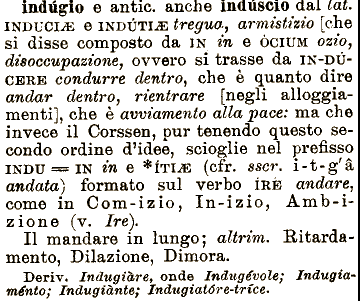 indúgio e antic. anche indúscio dal lat.
INDUCIÆ e INDÚTIÆ tregua, armistizio [che
si disse composto da IN in e ÒCIUM ozio,
disoccupazione, ovvero si trasse da IN-DÚ-
CERE condurre dentro, che è quanto dire
andar dentro, rientrare [negli alloggia-
menti], che è avviamento alla pace: ma che
invece il Corssen, pur tenendo questo se-
condo ordine d'idee, scioglie nel prefisso
INDU = IN in e *ÍTIÆ (cfr. sscr. i-t-g'â
andata) formato sul verbo ÍRE andare,
come in Com-izio, In-izio, Amb-i-
zione (v. Ire).
Il mandare in lungo; altrim. Ritarda-
mento, Dilazione, Dimora.
Deriv. Indugiàre, onde Indugévole; Indugia-
ménto; Indugiànte; Indugiatóre-trice.